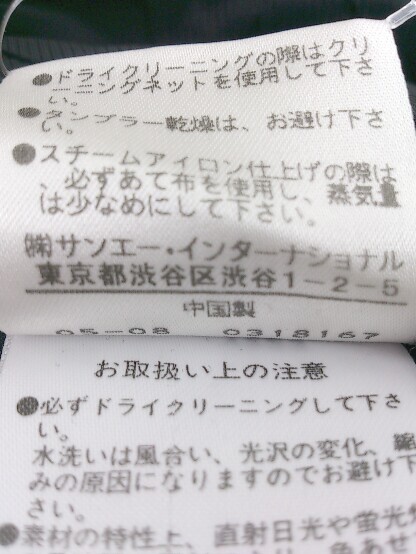 ●ドライクリーニングの際はクリ
ーニングネットを使用して下さ
い。
●タンブラー乾燥は、お避け下さ
い。
●スチームアイロン仕上げの際は
、必ずあて布を使用し、蒸気量
は少なめにして下さい。
㈱サンエー・インターナショナル
東京都渋谷区渋谷1-2-5
中国製
05-08 0318167
お取扱い上の注意
●必ずドライクリーニングして下さ
い。
水洗いは風合い、光沢の変化、縮
みの原因になりますのでお避け下
さい。
●素材の特性上、直射日光や蛍光